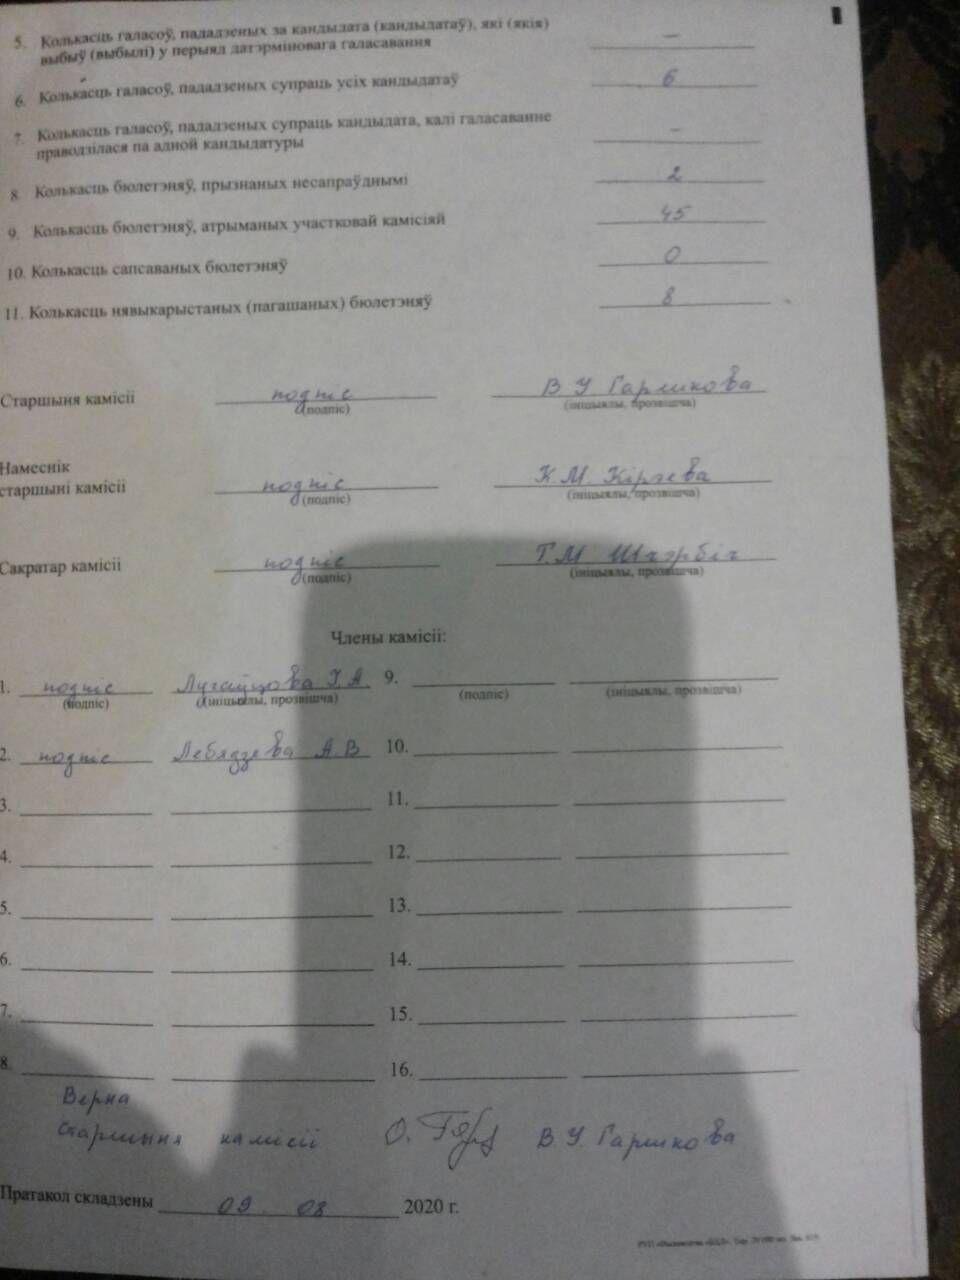 5. Колькасць галасоў, пададзеных за кандыдата (кандыдатаў), які (якія)
выбыў (выбылі) у перыяд датэрміновага галасавання –
6. Колькасць галасоў, пададзеных супраць усіх кандыдатаў 6
7. Колькасць галасоў, пададзеных супраць кандыдата, калі галасаванне
праводзілася па адной кандыдатуры –
8. Колькасць бюлетэняў, прызнаных несапраўднымі 2
9. Колькасць бюлетэняў, атрыманых участковай камісіяй 45
10. Колькасць сапсаваных бюлетэняў 0
11. Колькасць нявыкарыстаных (пагашаных) бюлетэняў 8
Старшыня камісіі подпіс В У Гарликова
(подпіс) (ініцыялы, прозвішча)
Намеснік
старшыні камісіі подпіс К.М. Кіргева
(подпіс) (ініцыялы, прозвішча)
Сакратар камісіі подпіс Т.М Шчэрбіч
(подпіс) (ініцыялы, прозвішча)
Члены камісіі:
1. подпіс Лугаўцова Т.А 9.
(подпіс) (ініцыялы, прозвішча) (подпіс) (ініцыялы, прозвішча)
2. подпіс Лебядзева А.В 10.
3. 11.
4. 12.
5. 13.
6. 14.
7. 15.
8. 16.
Верна
старшыня камісіі В.У. Гарликова
Пратакол складзены 09. 08 2020 г.